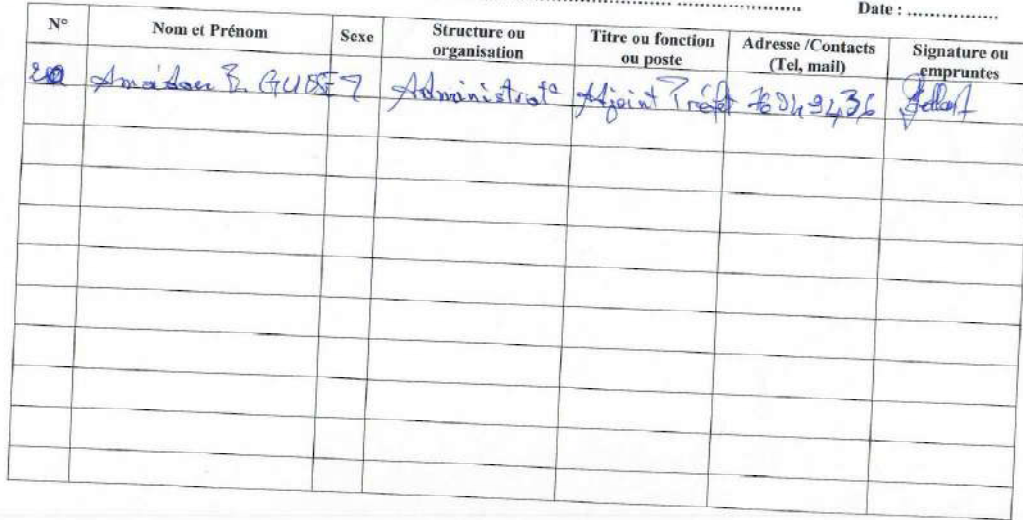 Date : ................
N° Nom et Prénom Sexe Structure ou organisation Titre ou fonction ou poste Adresse /Contacts (Tel, mail) Signature ou empruntes
20 Amadou B. Administrat° Adjoint Préfet 76949436